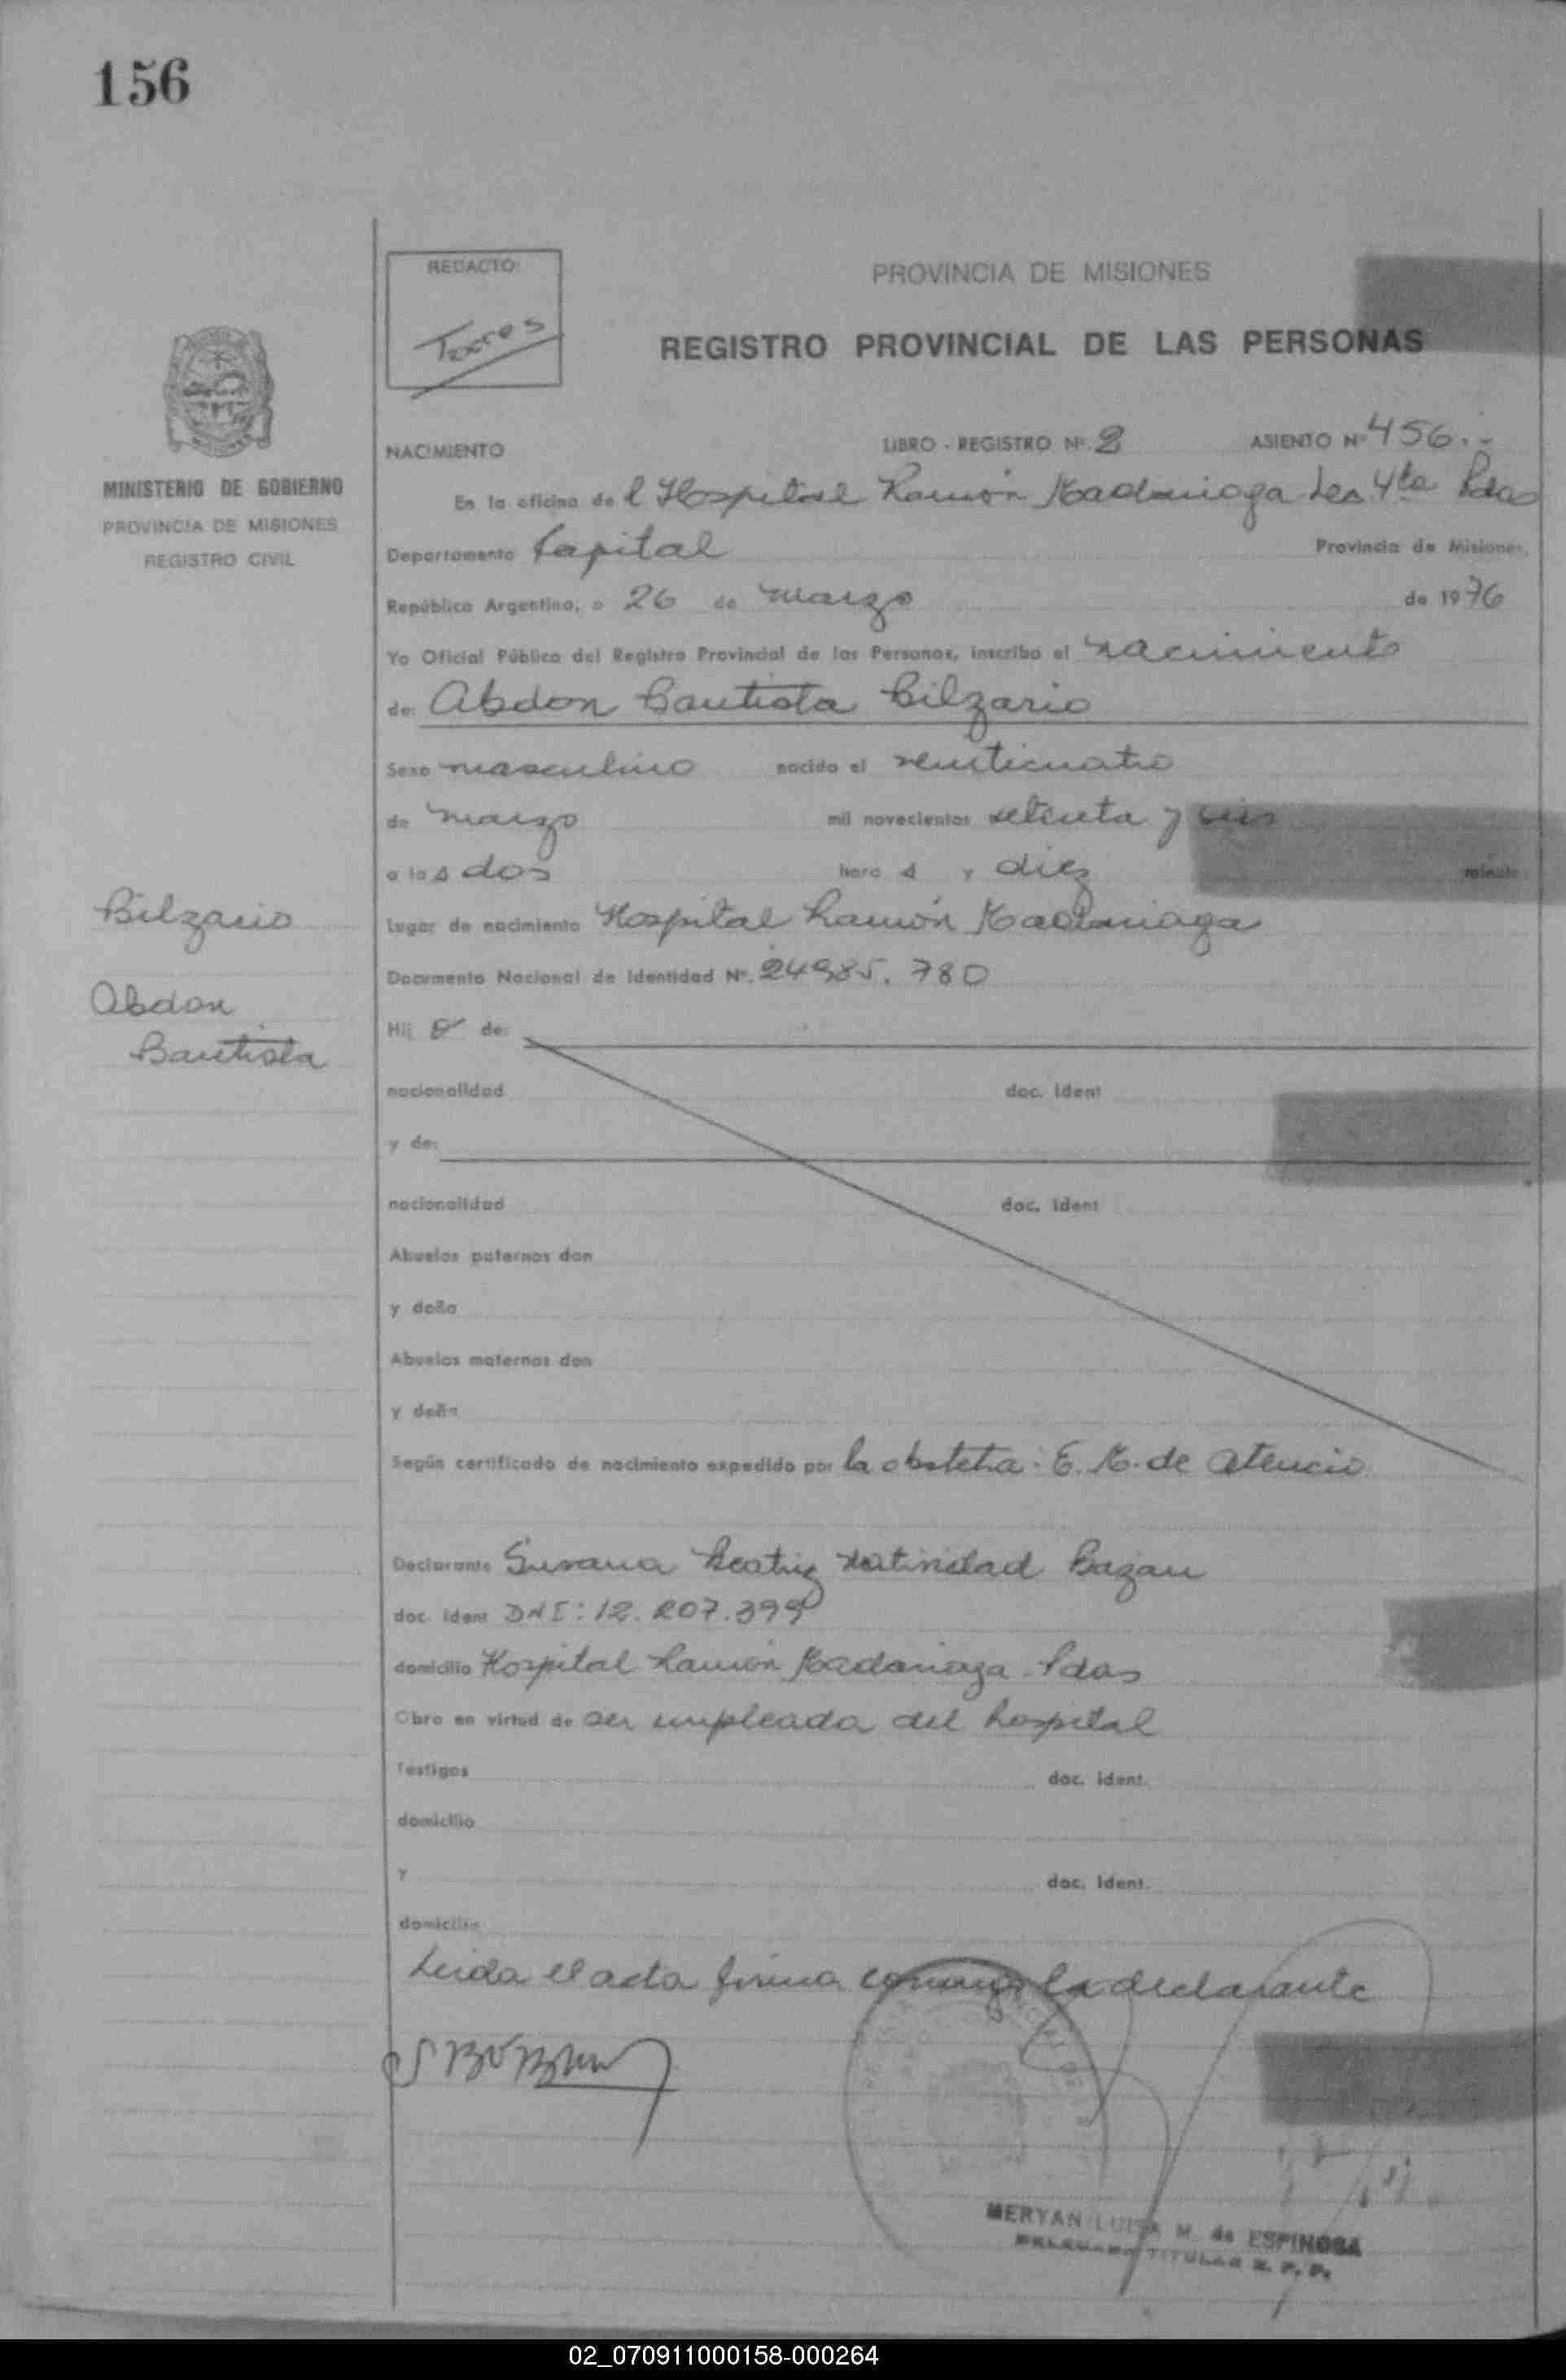 156
REDACTO:
PROVINCIA DE MISIONES
REGISTRO PROVINCIAL DE LAS PERSONAS
MINISTERIO DE GOBIERNO
PROVINCIA DE MISIONES
REGISTRO CIVIL
NACIMIENTO LIBRO - REGISTRO Nº. 2 ASIENTO Nº 456.-
En la oficina de l Hospital Ramón Madariaga Sec 4ta Pdas
Departamento Capital Provincia de Misiones,
República Argentina, a 26 de marzo de 1976
Yo Oficial Público del Registro Provincial de las Personas, inscribo el nacimiento
de: Abdon Bautista Bilzario
Sexo masculino nacido el veinticuatro
de marzo mil novecientos setenta y seis
a las dos hora s y diez minutos
Lugar de nacimiento Hospital Ramón Madariaga
Documento Nacional de Identidad Nº. 24.985.780
Bilzario
Abdon
Bautista
Hij o de:
nacionalidad doc. ident
y de:
nacionalidad doc. ident
Abuelos paternos don
y doña
Abuelos maternos don
y doña
Según certificado de nacimiento expedido por la obstetra: E. M. de Atencio
Declarante Susana Beatriz Natividad Bazan
doc. ident DNI: 12.207.399
domicilio Hospital Ramón Madariaga - Pdas
Obra en virtud de ser empleada del hospital
Testigos doc. ident.
domicilio
y doc. ident.
domicilio
Leida el acta firma conmigo la declarante
MERYAN LUISA M. de ESPINOSA
DELEGADA TITULAR R. P. P.
02_070911000158-000264